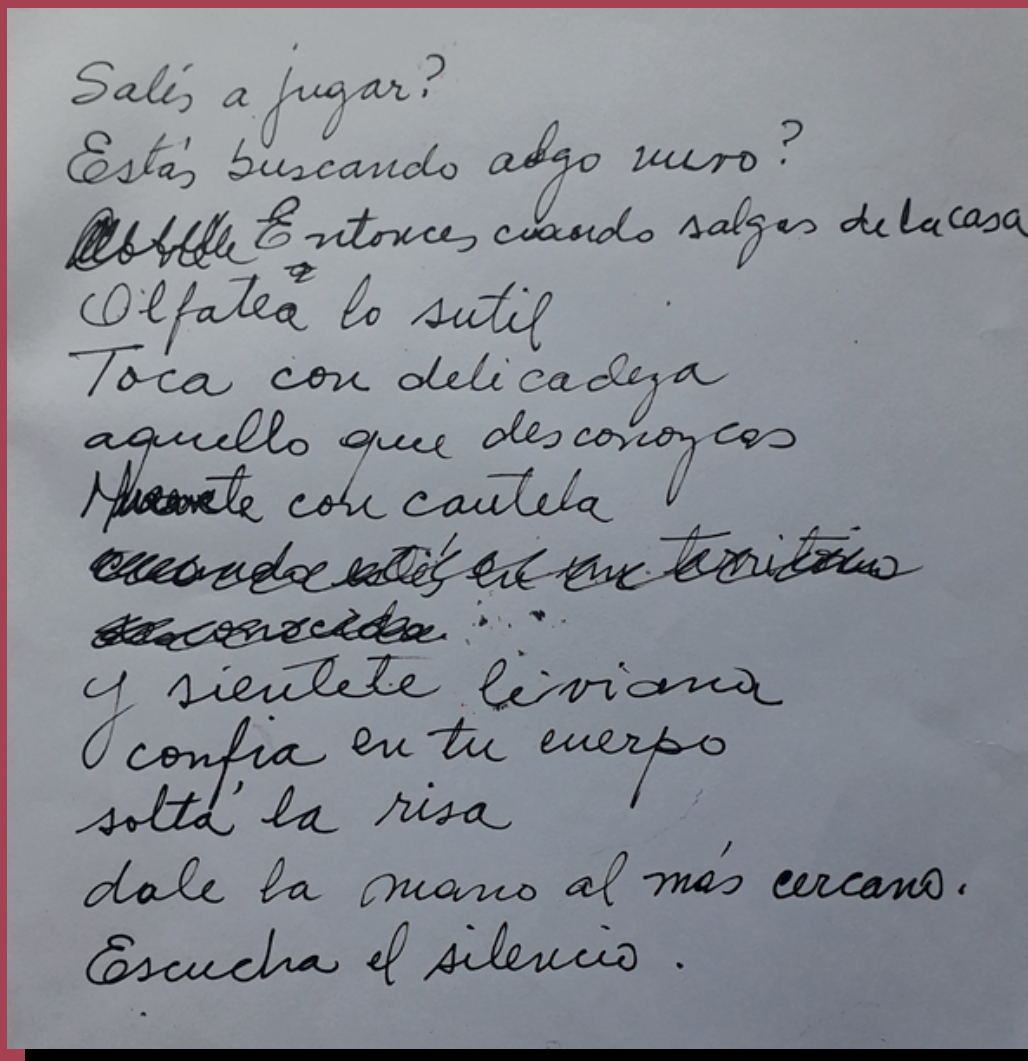 Salís a jugar?
Estás buscando algo nuevo?
Entonces cuando salgas de la casa
Olfatea lo sutil
Toca con delicadeza
aquello que desconozcas
con cautela
cuando estés en un territorio
Y sientete liviana
confia en tu cuerpo
soltá la risa
dale la mano al más cercano.
Escucha el silencio.